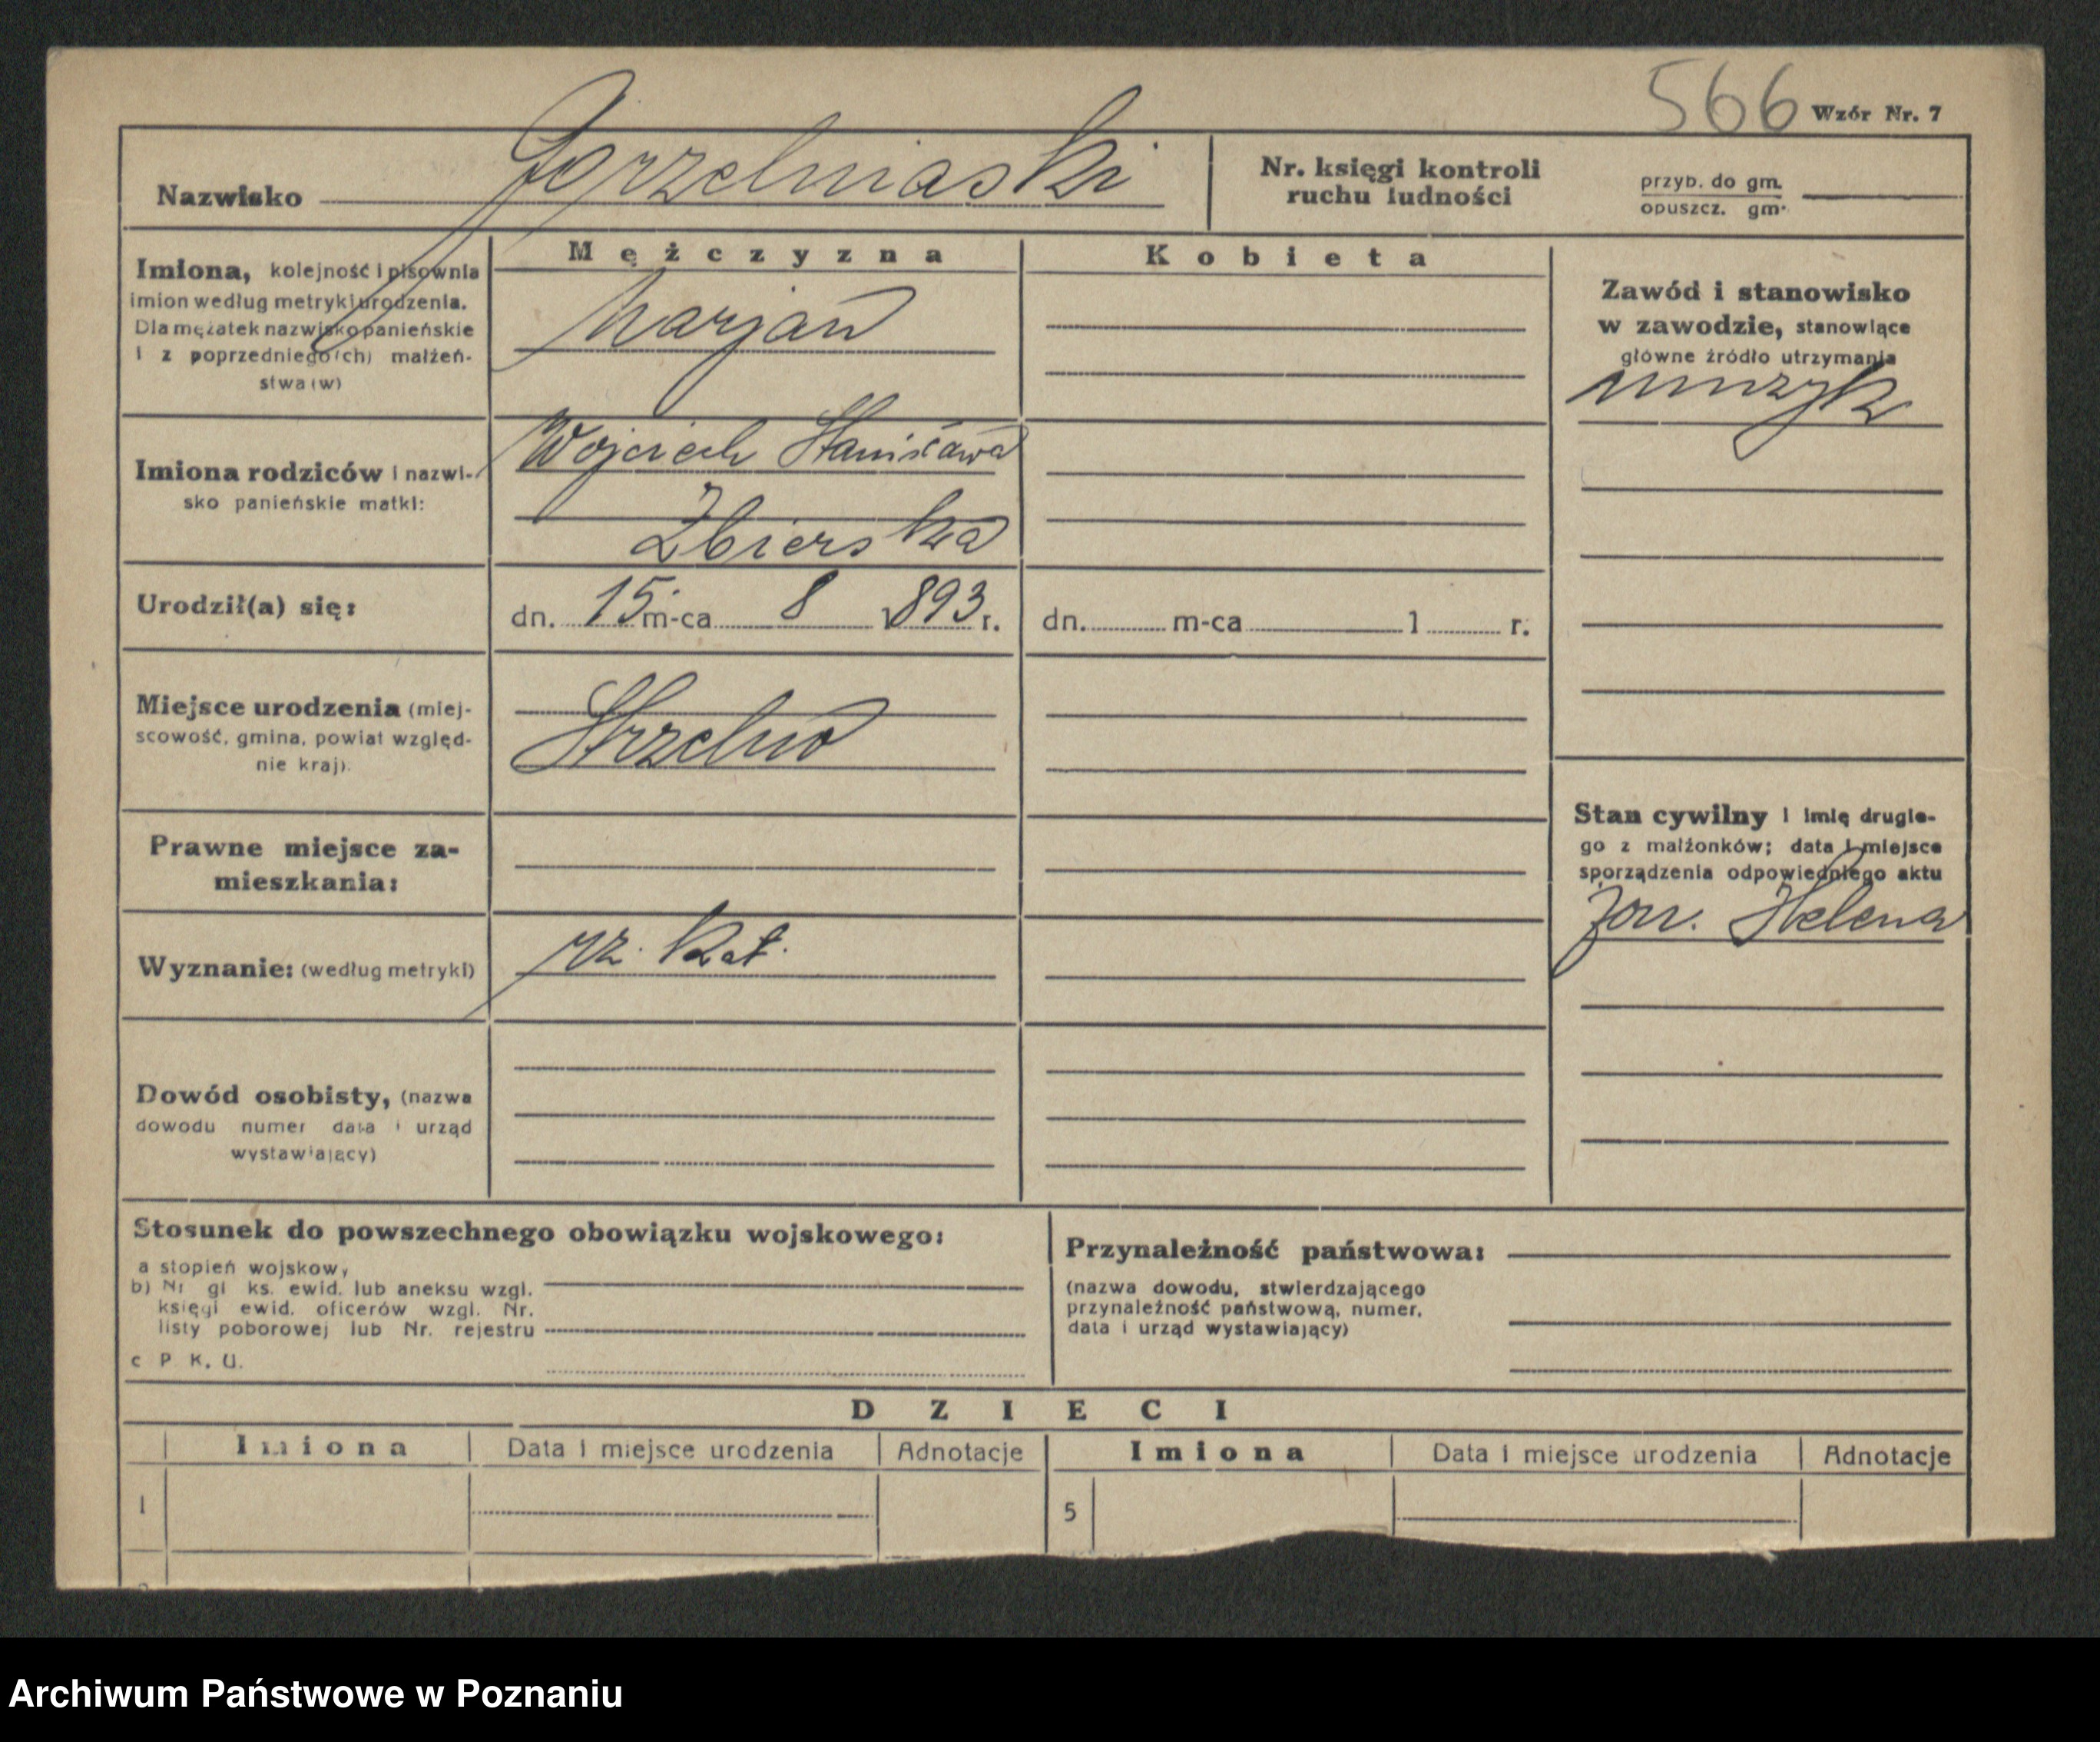 566 Wzór Nr. 7
Nazwisko Gorzelniaski
Nr. księgi kontroli
ruchu ludności
przyb. do gm.
opuszcz. gm.
Mężczyzna
Kobieta
Imiona, kolejność i pisownia
imion według metryki urodzenia.
Dla mężatek nazwisko panieńskie
i z poprzedniego(ch) małżeń-
stwa (w)
Marjan
Zawód i stanowisko
w zawodzie, stanowiące
główne źródło utrzymania
muzyk
Imiona rodziców i nazwi-
sko panieńskie matki:
Wojciech Stanisława
Zbierska
Urodził(a) się:
dn. 15 m-ca 8 1893 r.
dn. m-ca 1 r.
Miejsce urodzenia (miej-
scowość, gmina, powiat względ-
nie kraj).
Strzelno
Prawne miejsce za-
mieszkania:
Stan cywilny i imię drugie-
go z małżonków; data i miejsce
sporządzenia odpowiedniego aktu
żon. Helena
Wyznanie: (według metryki)
rz. kat.
Dowód osobisty, (nazwa
dowodu numer data i urząd
wystawiający)
Stosunek do powszechnego obowiązku wojskowego:
a stopień wojskowy
b) Nr gł ks. ewid. lub aneksu wzgl.
księgi ewid. oficerów wzgl. Nr.
listy poborowej lub Nr. rejestru
c P. K. U.
Przynależność państwowa:
(nazwa dowodu, stwierdzającego
przynależność państwową, numer,
data i urząd wystawiający)
DZIECI
Imiona Data i miejsce urodzenia Adnotacje Imiona Data i miejsce urodzenia Adnotacje
1 5
Archiwum Państwowe w Poznaniu